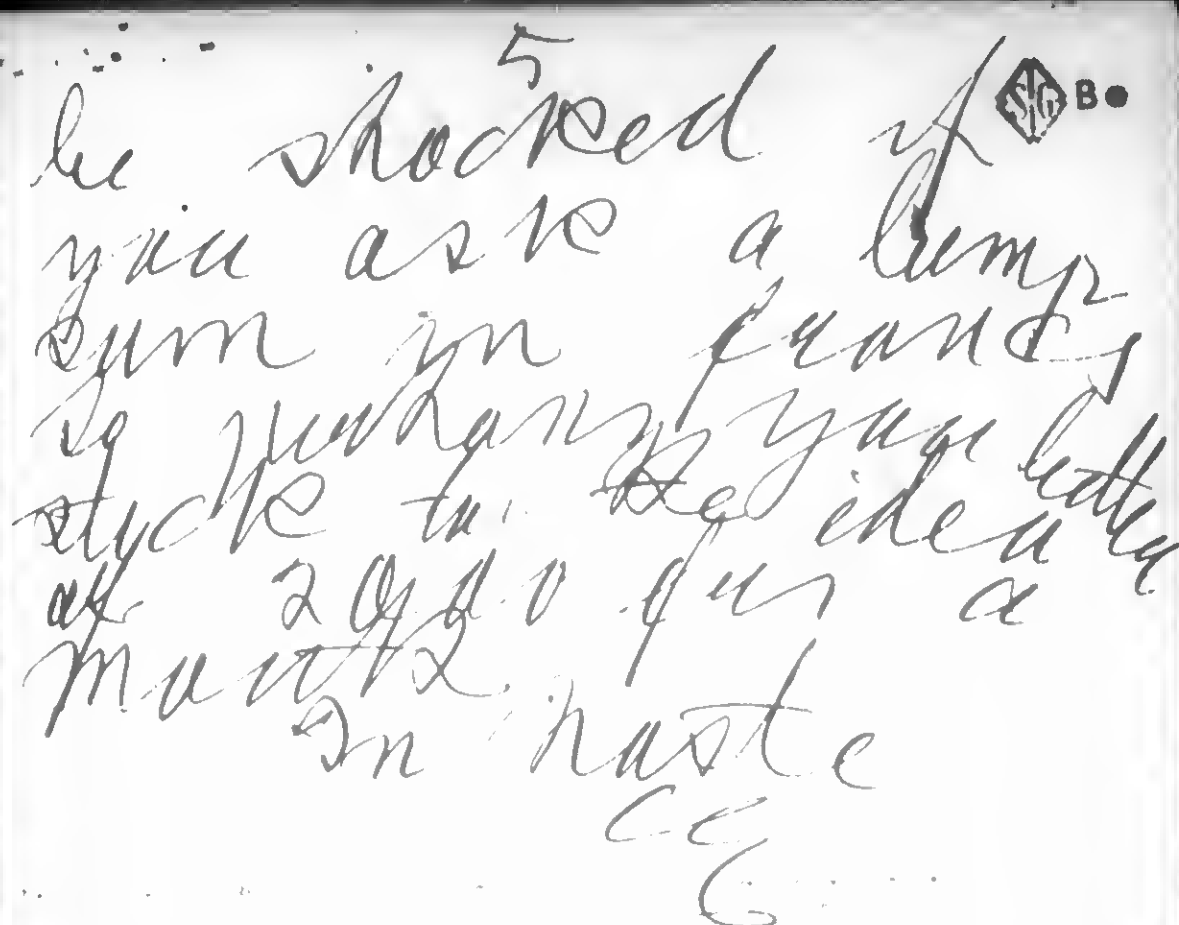 5
be shocked if
you ask a lump
sum in francs
so perhaps you better
stick to the idea
of 2000 frs a
month
In haste
SIG B